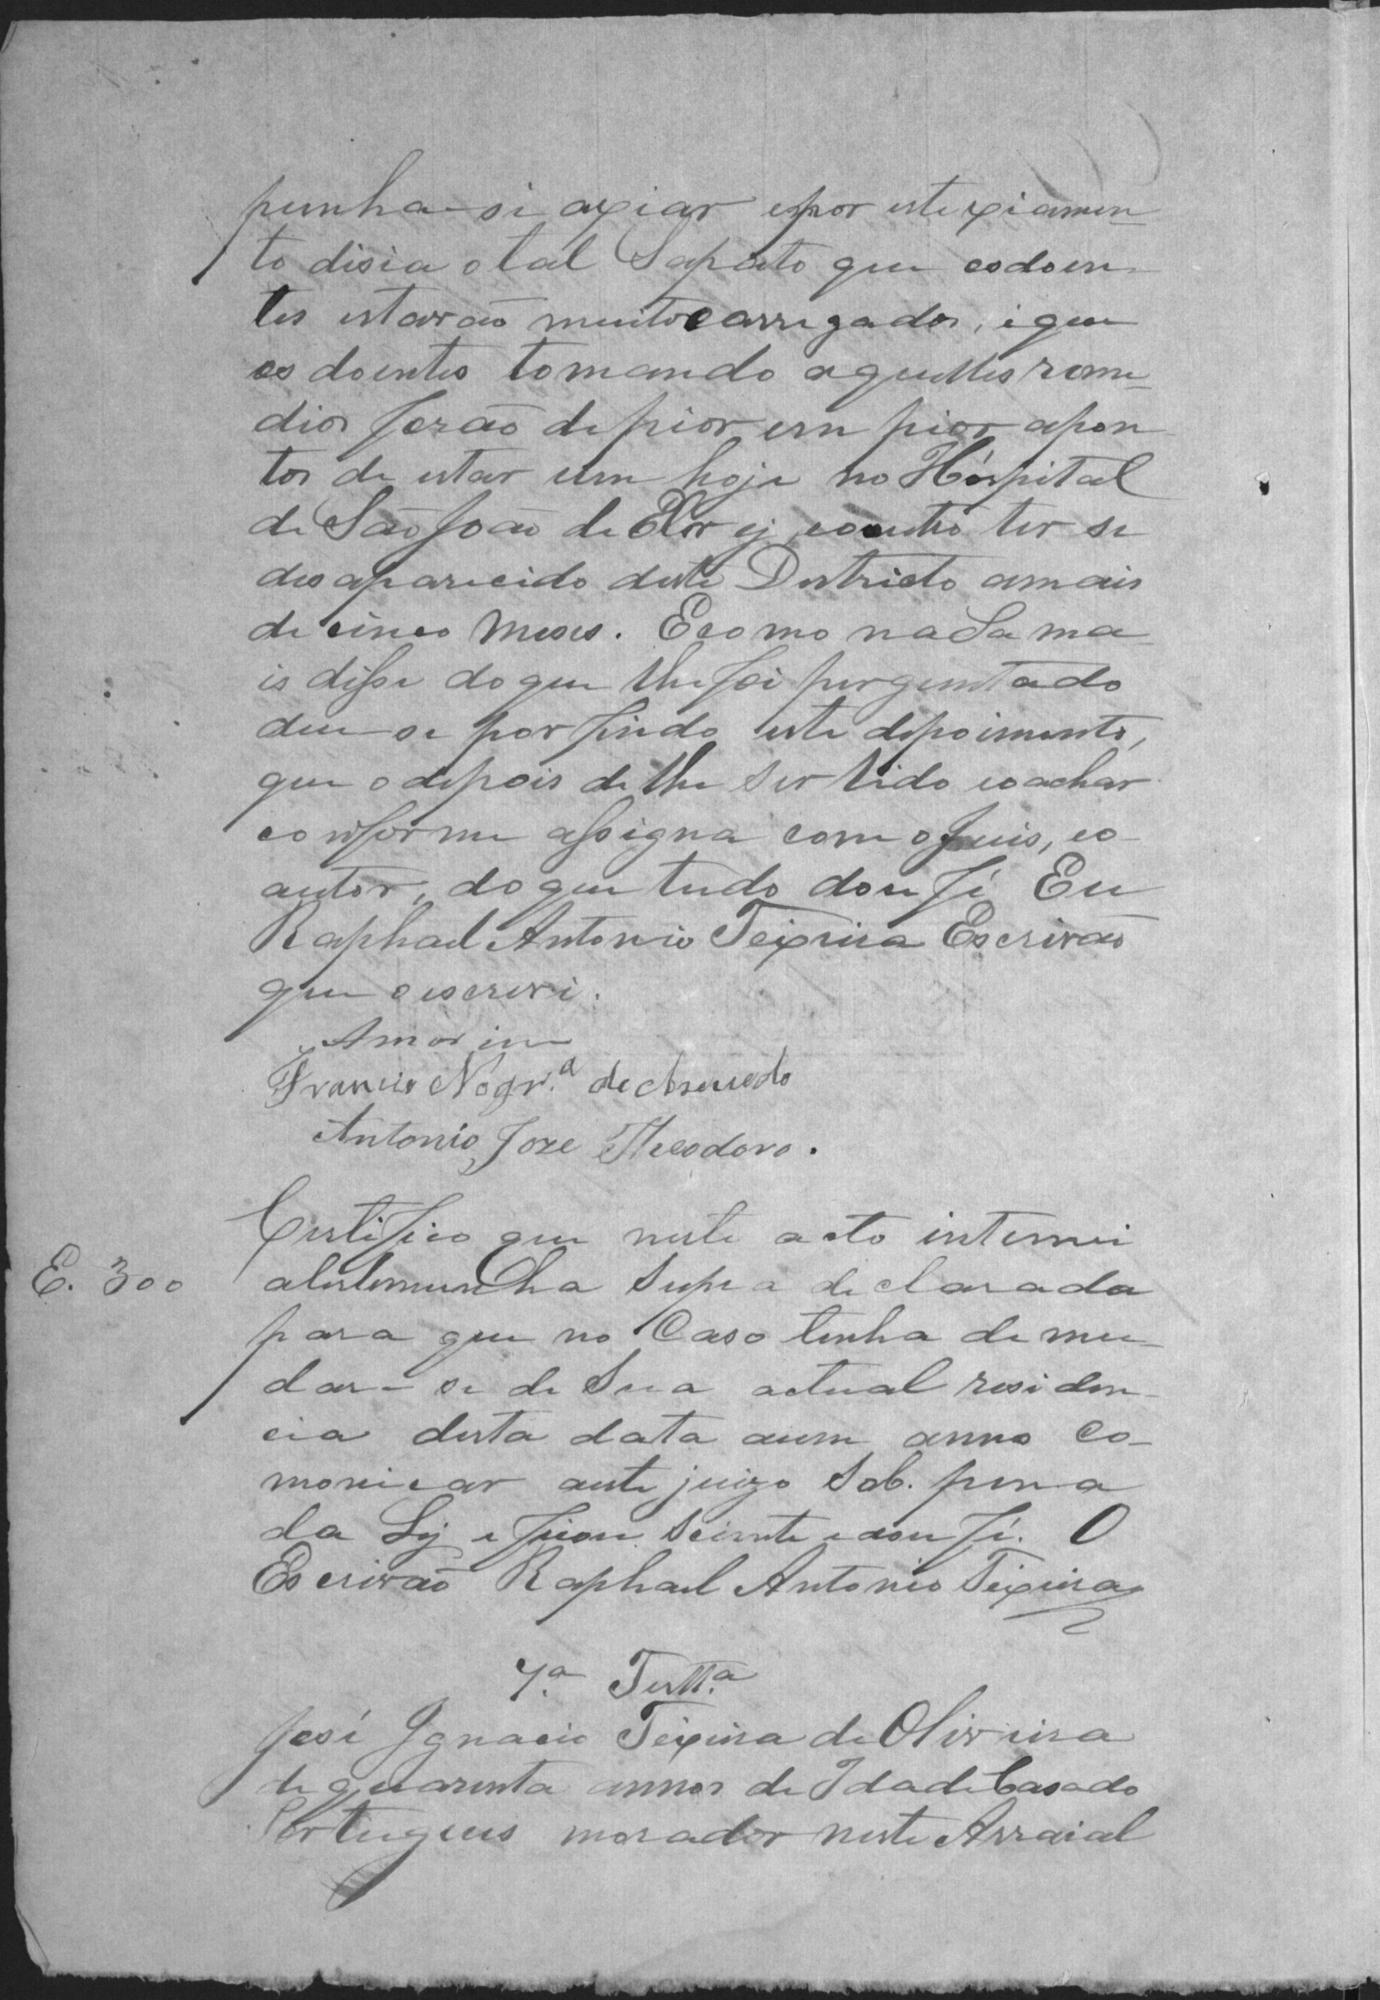 punha-si axiar epor este xiamen
to disia otal Sapato que osdoen
tes estavão muito carregados, eque
os doentes tomando aquelles reme
dios forão de pior em pior apon
tos de estar um hoje no Hóspital
de São João de El Rey, eooutro ter se
desaparecido deste Destricto amais
de cinco meses. Ecomo nada ma
is disse doque lhe foi perguntado
deu-se por findo este depoimento,
que odepois de lhe ser lido eoachar
conforme assigna com o Juis, eo
autor, doque tudo dou fé Eu
Raphael Antonio Teixeira Escrivão
que oescrevi.
Amorim
Francisco Nogr.ª de Asevedo
Antonio Joze Theodoro.
Certifico que neste acto intemei
E. 300
atestemunha supra declarada
para que no Caso tenha de mu
dar-se de Sua actual residen
cia desta data aum anno Co-
monicar aeste juizo Sob. pena
da Ley e ficou sciente edou fé. O
Escrivão Raphael Antonio Teixeira
7.ª Testt.ª
José Ignacio Teixeira de Oliveira
de quarenta annos de Idade Casado
Portugues morador neste Arraial